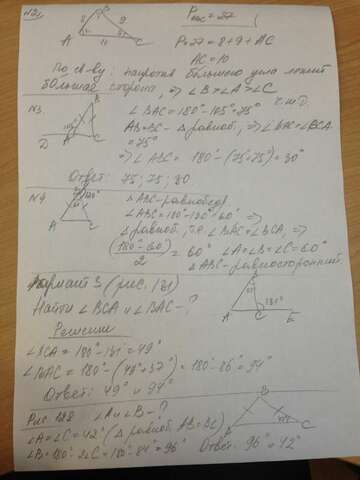 №2.
B
8 9
A 11 C
P авс = 27
P = 27 = 8 + 9 + AC
AC = 10
По св-ву: напротив большего угла лежит
большая сторона, => ∠B > ∠A > ∠C
ч.т.д.
№3
B
D A C
∠BAC = 180° - 105° = 75°
AB = BC - Δ равноб, => ∠BAC = ∠BCA
= 75°
=> ∠ABC = 180° - (75+75°) = 30°
Ответ: 75; 75; 30
№4
B
A C
Δ ABC - равнобедр
∠ABC = 180° - 120° = 60° =>
Δ равноб, т.е. ∠BAC = ∠BCA, =>
(180° - 60°) / 2 = 60° ∠A = ∠B = ∠C = 60°
Δ ABC - равносторонний
Вариант 3 (рис. 181)
Найти ∠BCA и ∠BAC - ?
B
A C E
131°
Решение
∠BCA = 180° - 131° = 49°
∠BAC = 180° - (49° + 37°) = 180° - 86° = 94°
Ответ: 49° и 94°
Рис 182 ∠A и ∠B - ?
B
A C
∠A = ∠C = 42° (Δ равноб. AB = BC)
∠B = 180° - 2∠C = 180° - 84° = 96° Ответ: 96° и 42°